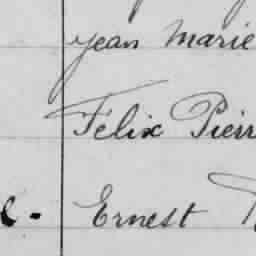 Jean Marie
Félix Pierr
Ernest